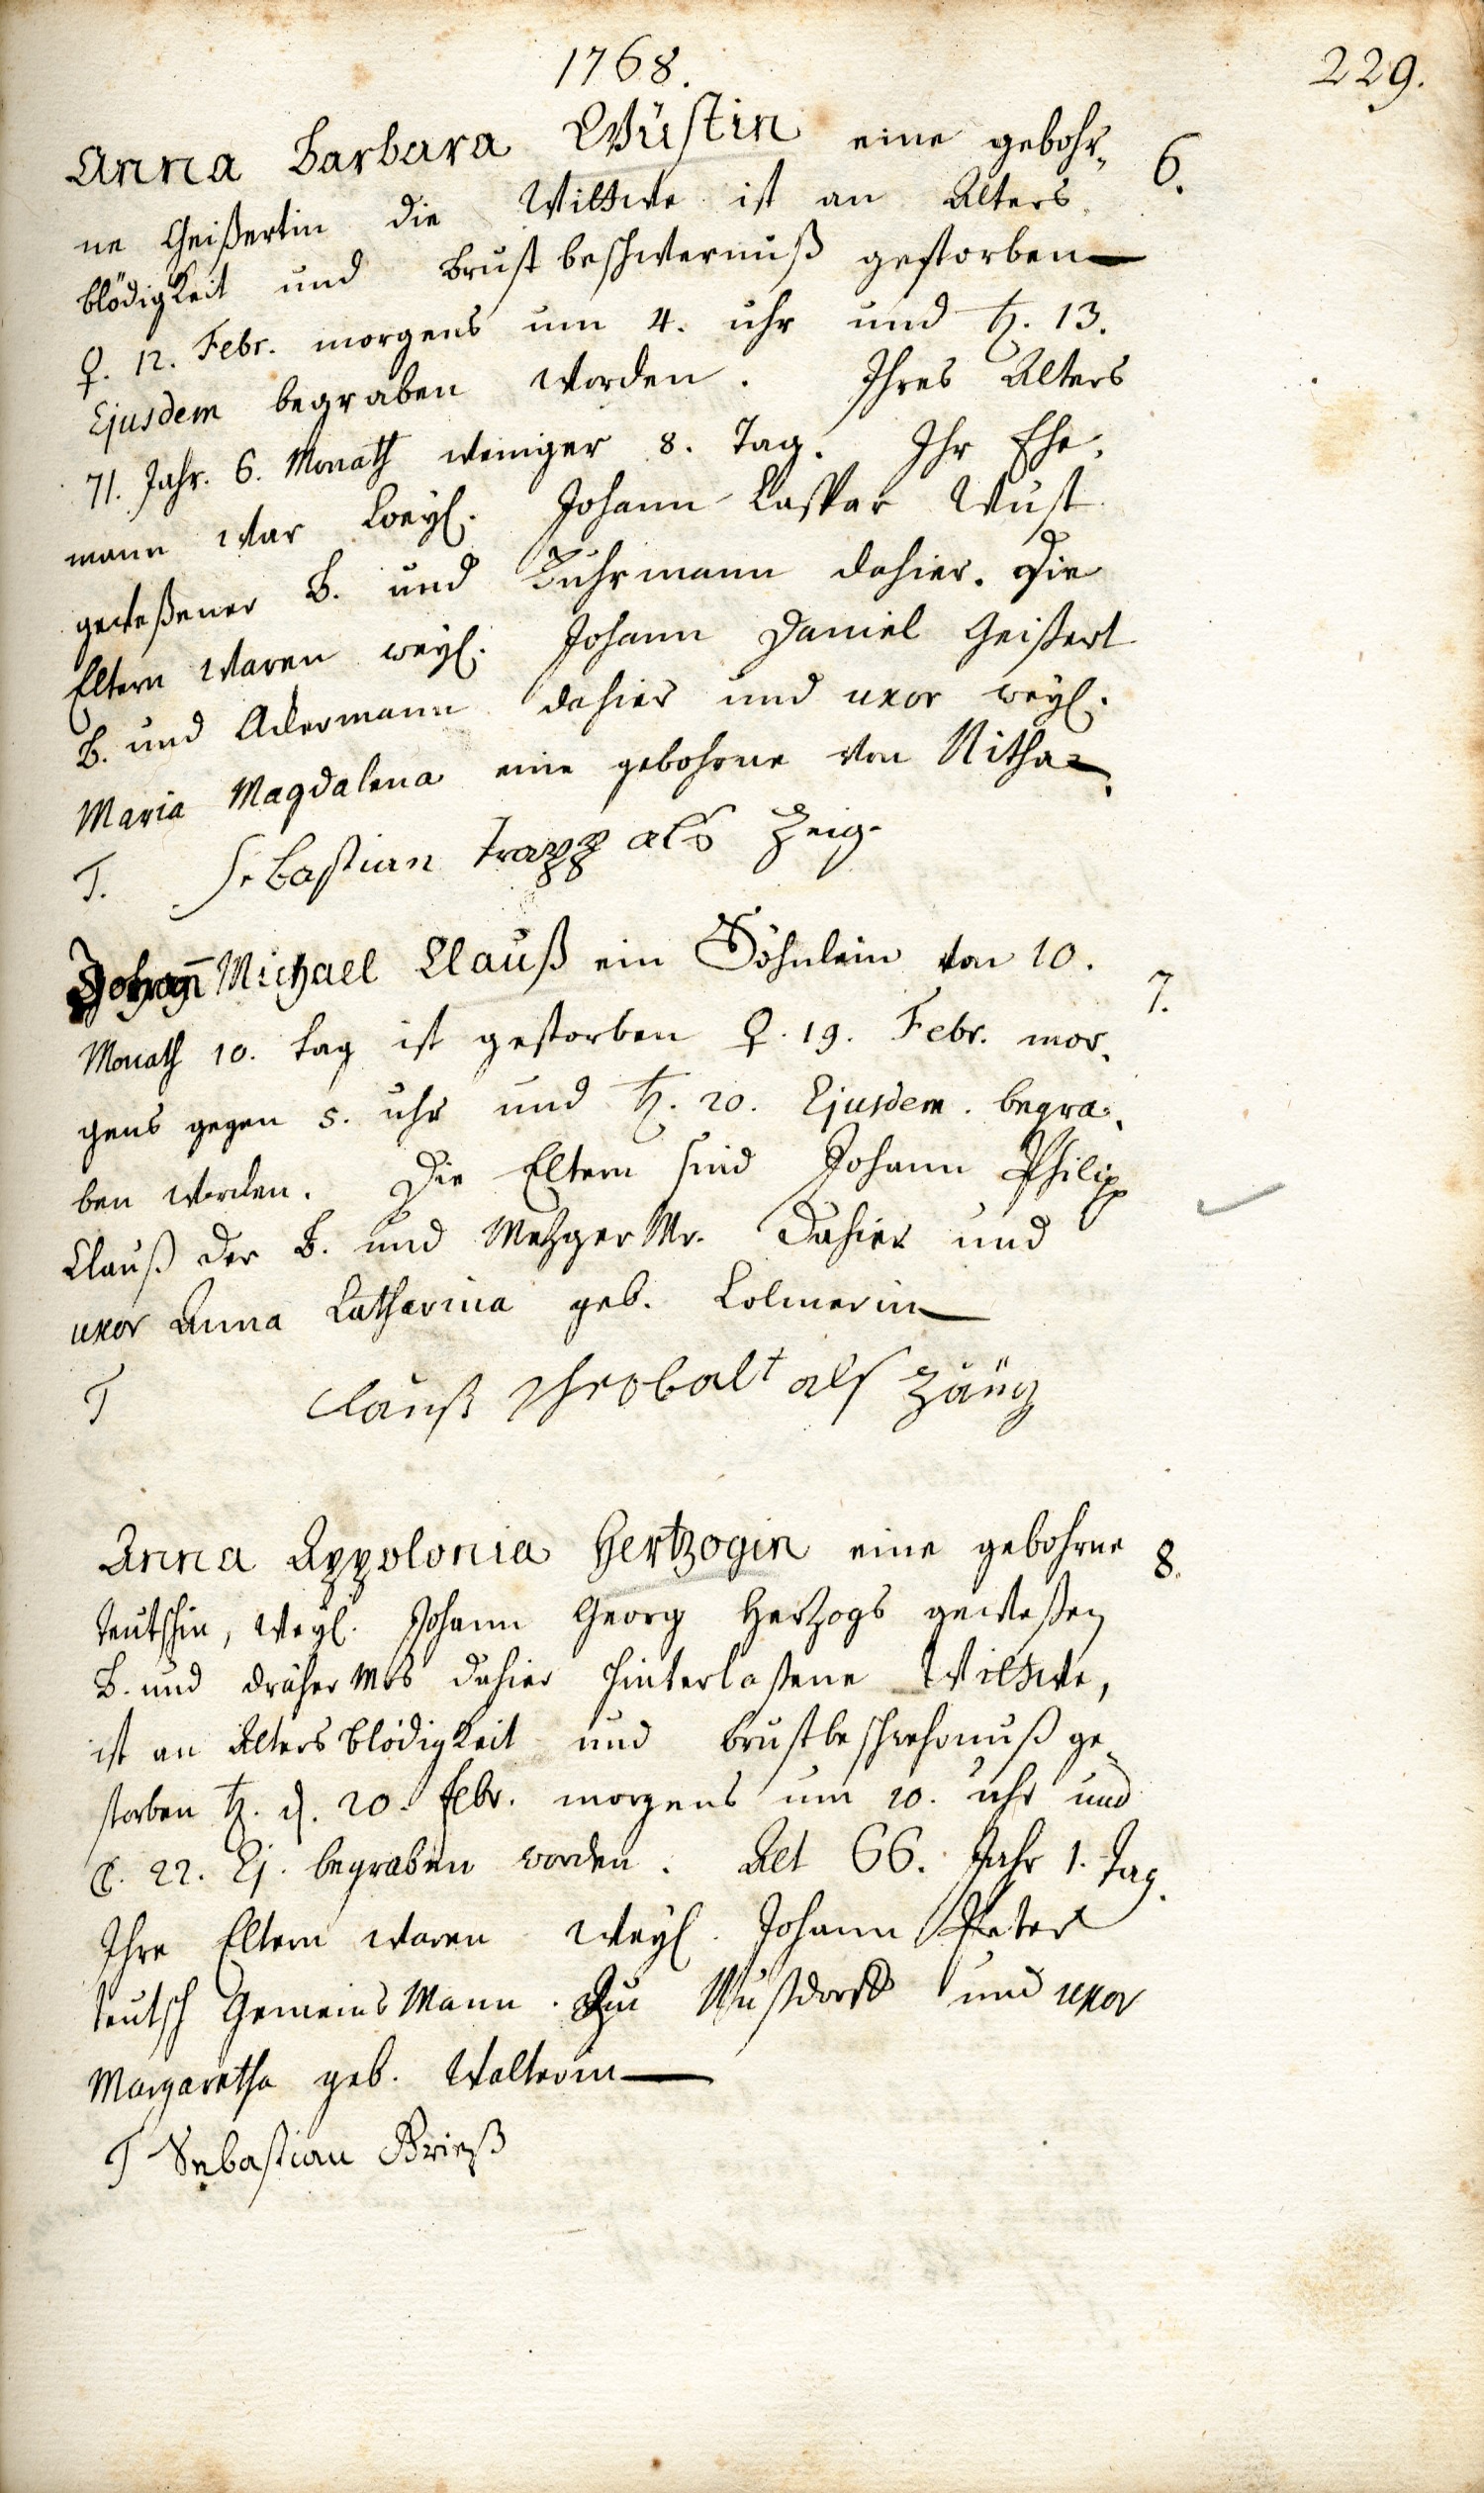 1768.
229.
Anna Barbara Wüstin eine gebohr-
6.
ne Geißertin die Wittwe ist an Alters
blödigkeit und Brust beschwernuß gestorben
♀. 12. Febr. morgens um 4. uhr und ♄. 13.
Ejusdem begraben worden. Ihres Alters
71. Jahr. 6. Monath weniger 8. Tag. Ihr Ehe-
mann war weyl. Johann Caspar Wüst
geweßener B. und Fuhrmann dahier. Die
Eltern waren weyl. Johann Daniel Geißert
B. und Ackermann dahier und uxor weyl.
Maria Magdalena eine gebohrne von Nitha.
T. Sebastian Trapp als Zeig
Johann Michael Clauß ein Söhnlein von 10.
7.
Monath 10. tag ist gestorben ♀. 19. Febr. mor-
gens gegen 5. uhr und ♄. 20. Ejusdem. begra-
ben worden. Die Eltern sind Johann Philipp
Clauß der B. und Metzger Mr. dahier und
uxor Anna Catharina geb. Colmerin
T Clauß Theobalt als Zäüg
Anna Appolonia Hertzogin eine gebohrne
8.
Teutschin, weyl. Johann Georg Hertzogs geweßen
B. und dräher Mrs dahier hinterlaßene Wittwe,
ist an Alters blödigkeit und brustbeschwehrnuß ge-
storben ♄. d. 20. febr. morgens um 10. uhr und
☾. 22. Ej. begraben worden. Alt 66. Jahr 1. Tag.
Ihre Eltern waren weyl. Johann Peter
Teutsch Gemeins Mann. Zu Nußdorff und uxor
Margaretha geb. Walterin
T Sebastian Brieß